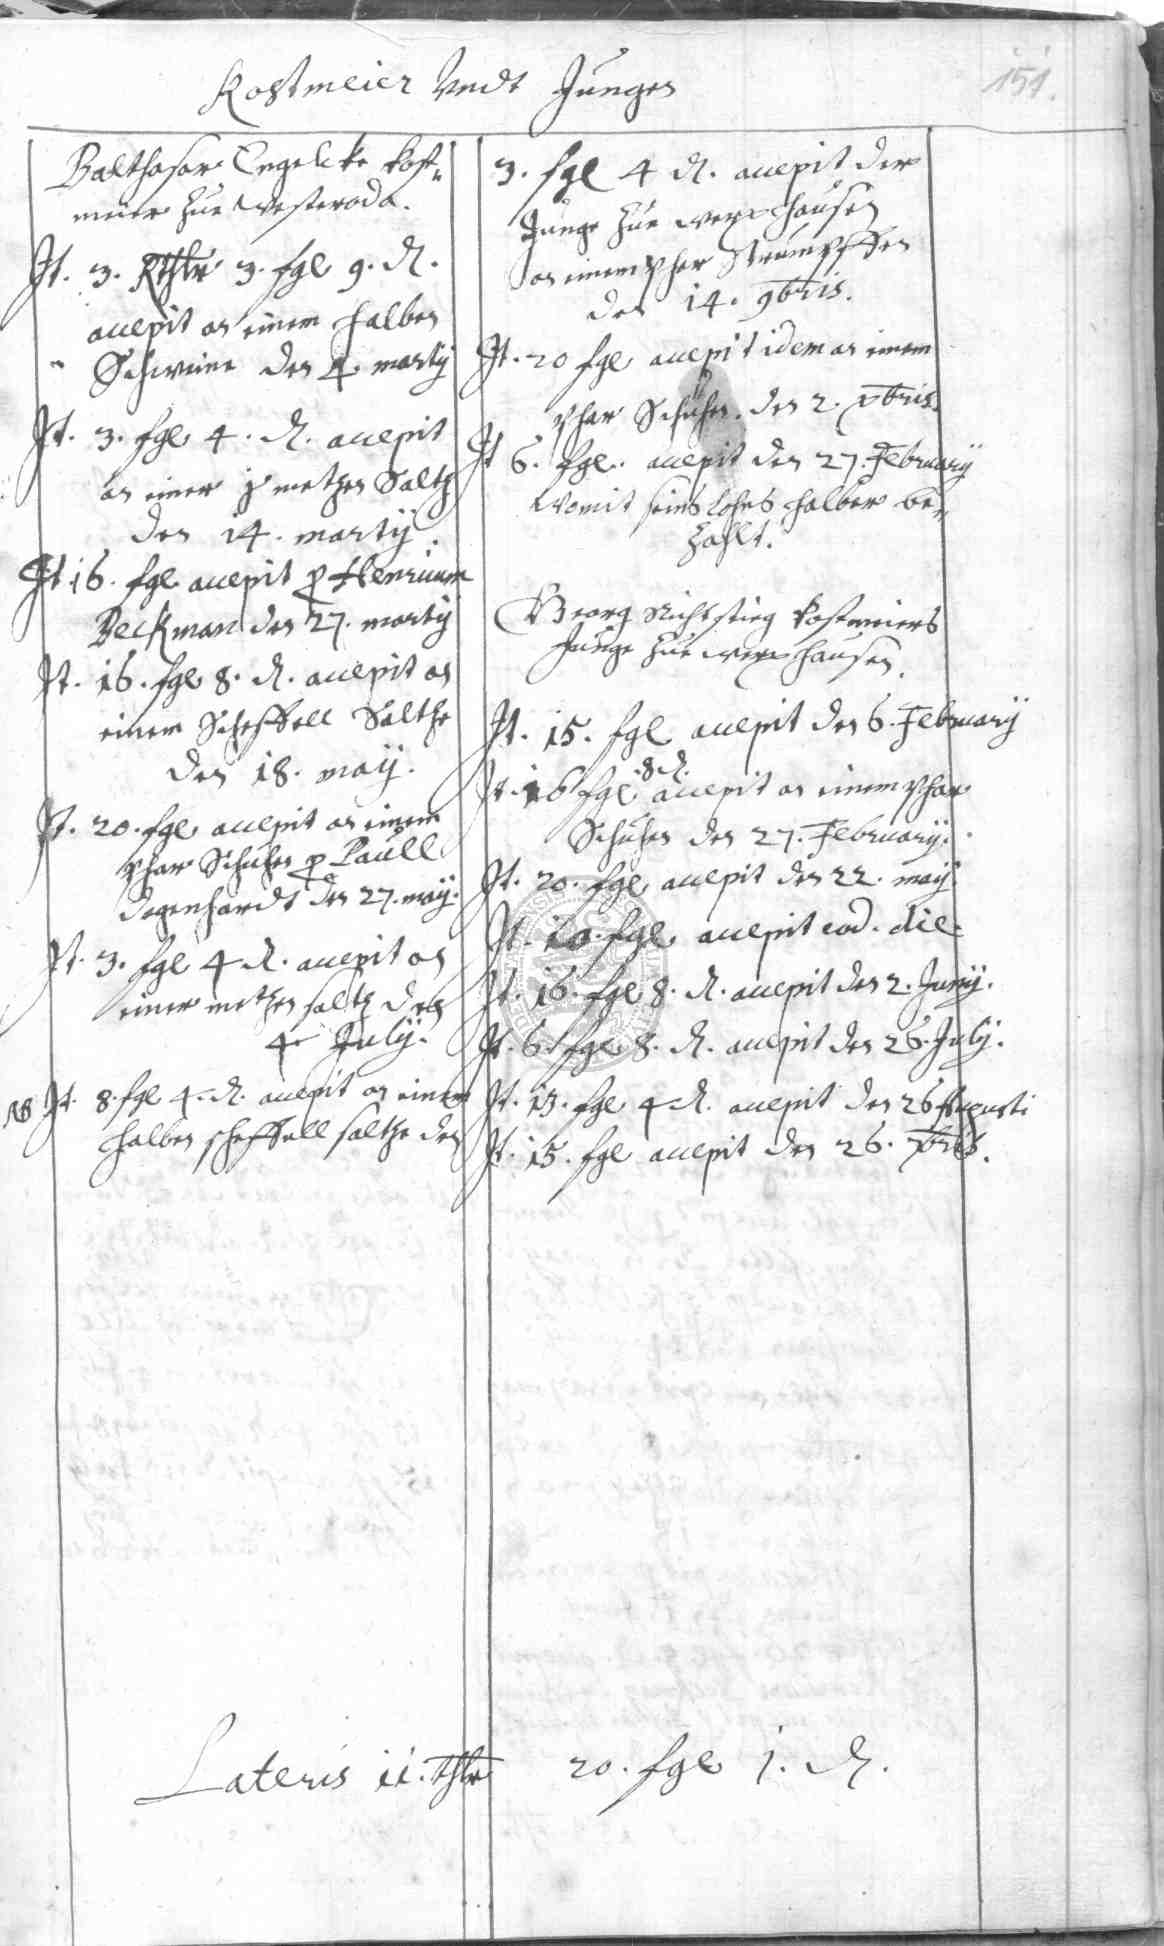 151.
Kostmeier Vndt Jungen
Balthasar Engelcke Kost-
meier zue Westeroda.
It. 3. Rthlr 3. fgl 9. d.
accepit an einem halben
Schweine den 4. martij
It. 3. fgl 4. d. accepit
an einer metzen Saltz
den 14. martij.
It 16. fgl accepit p Henricum
Beckman den 27. martij
It. 16. fgl 8. d. accepit an
einem Scheffell Saltze
den 18. maij.
It. 20. fgl accepit an einem
phar Schuhen p Paull
Degenhardt den 27. maij.
It. 3. fgl 4 d. accepit an
einer metzen saltz den
4 Julij.
NB It. 8. fgl 4. d. accepit an einem
halben scheffell saltze den
3. fgl 4 d. accepit der
Junge zue werxhausen
an einem phar Strümpffen
den 14. 9bris.
It. 20 fgl accepit idem an einem
phar Schuhen. den 2. xbris.
It 6. fgl. accepit den 27. February
womit seins lohns halber be-
zahlt.
Georg Nichtstieg Kostmeiers
Junge zue werxhausen.
It. 15. fgl accepit den 6. February
It. 16 fgl .8 d. accepit an einem phar
Schuhen den 27. February.
It. 20. fgl accepit den 22. maij
It. 10. fgl accepit eod. die.
It. 16. fgl 8. d. accepit den 2. Junij.
It. 6. fgl 8. d. accepit den 26. Julij.
It. 13. fgl 4 d. accepit den 26 Augusti
It. 15. fgl accepit den 26. xbris.
Lateris 11. thlr 20. fgl 1. d.